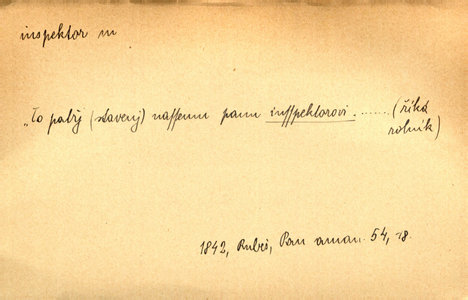 inspektor m
„To patřj (stavenj) nassemu panu insspektorovi ....... (říká
rolník)
1842, Rubeš, Pan aman. 54, 78.